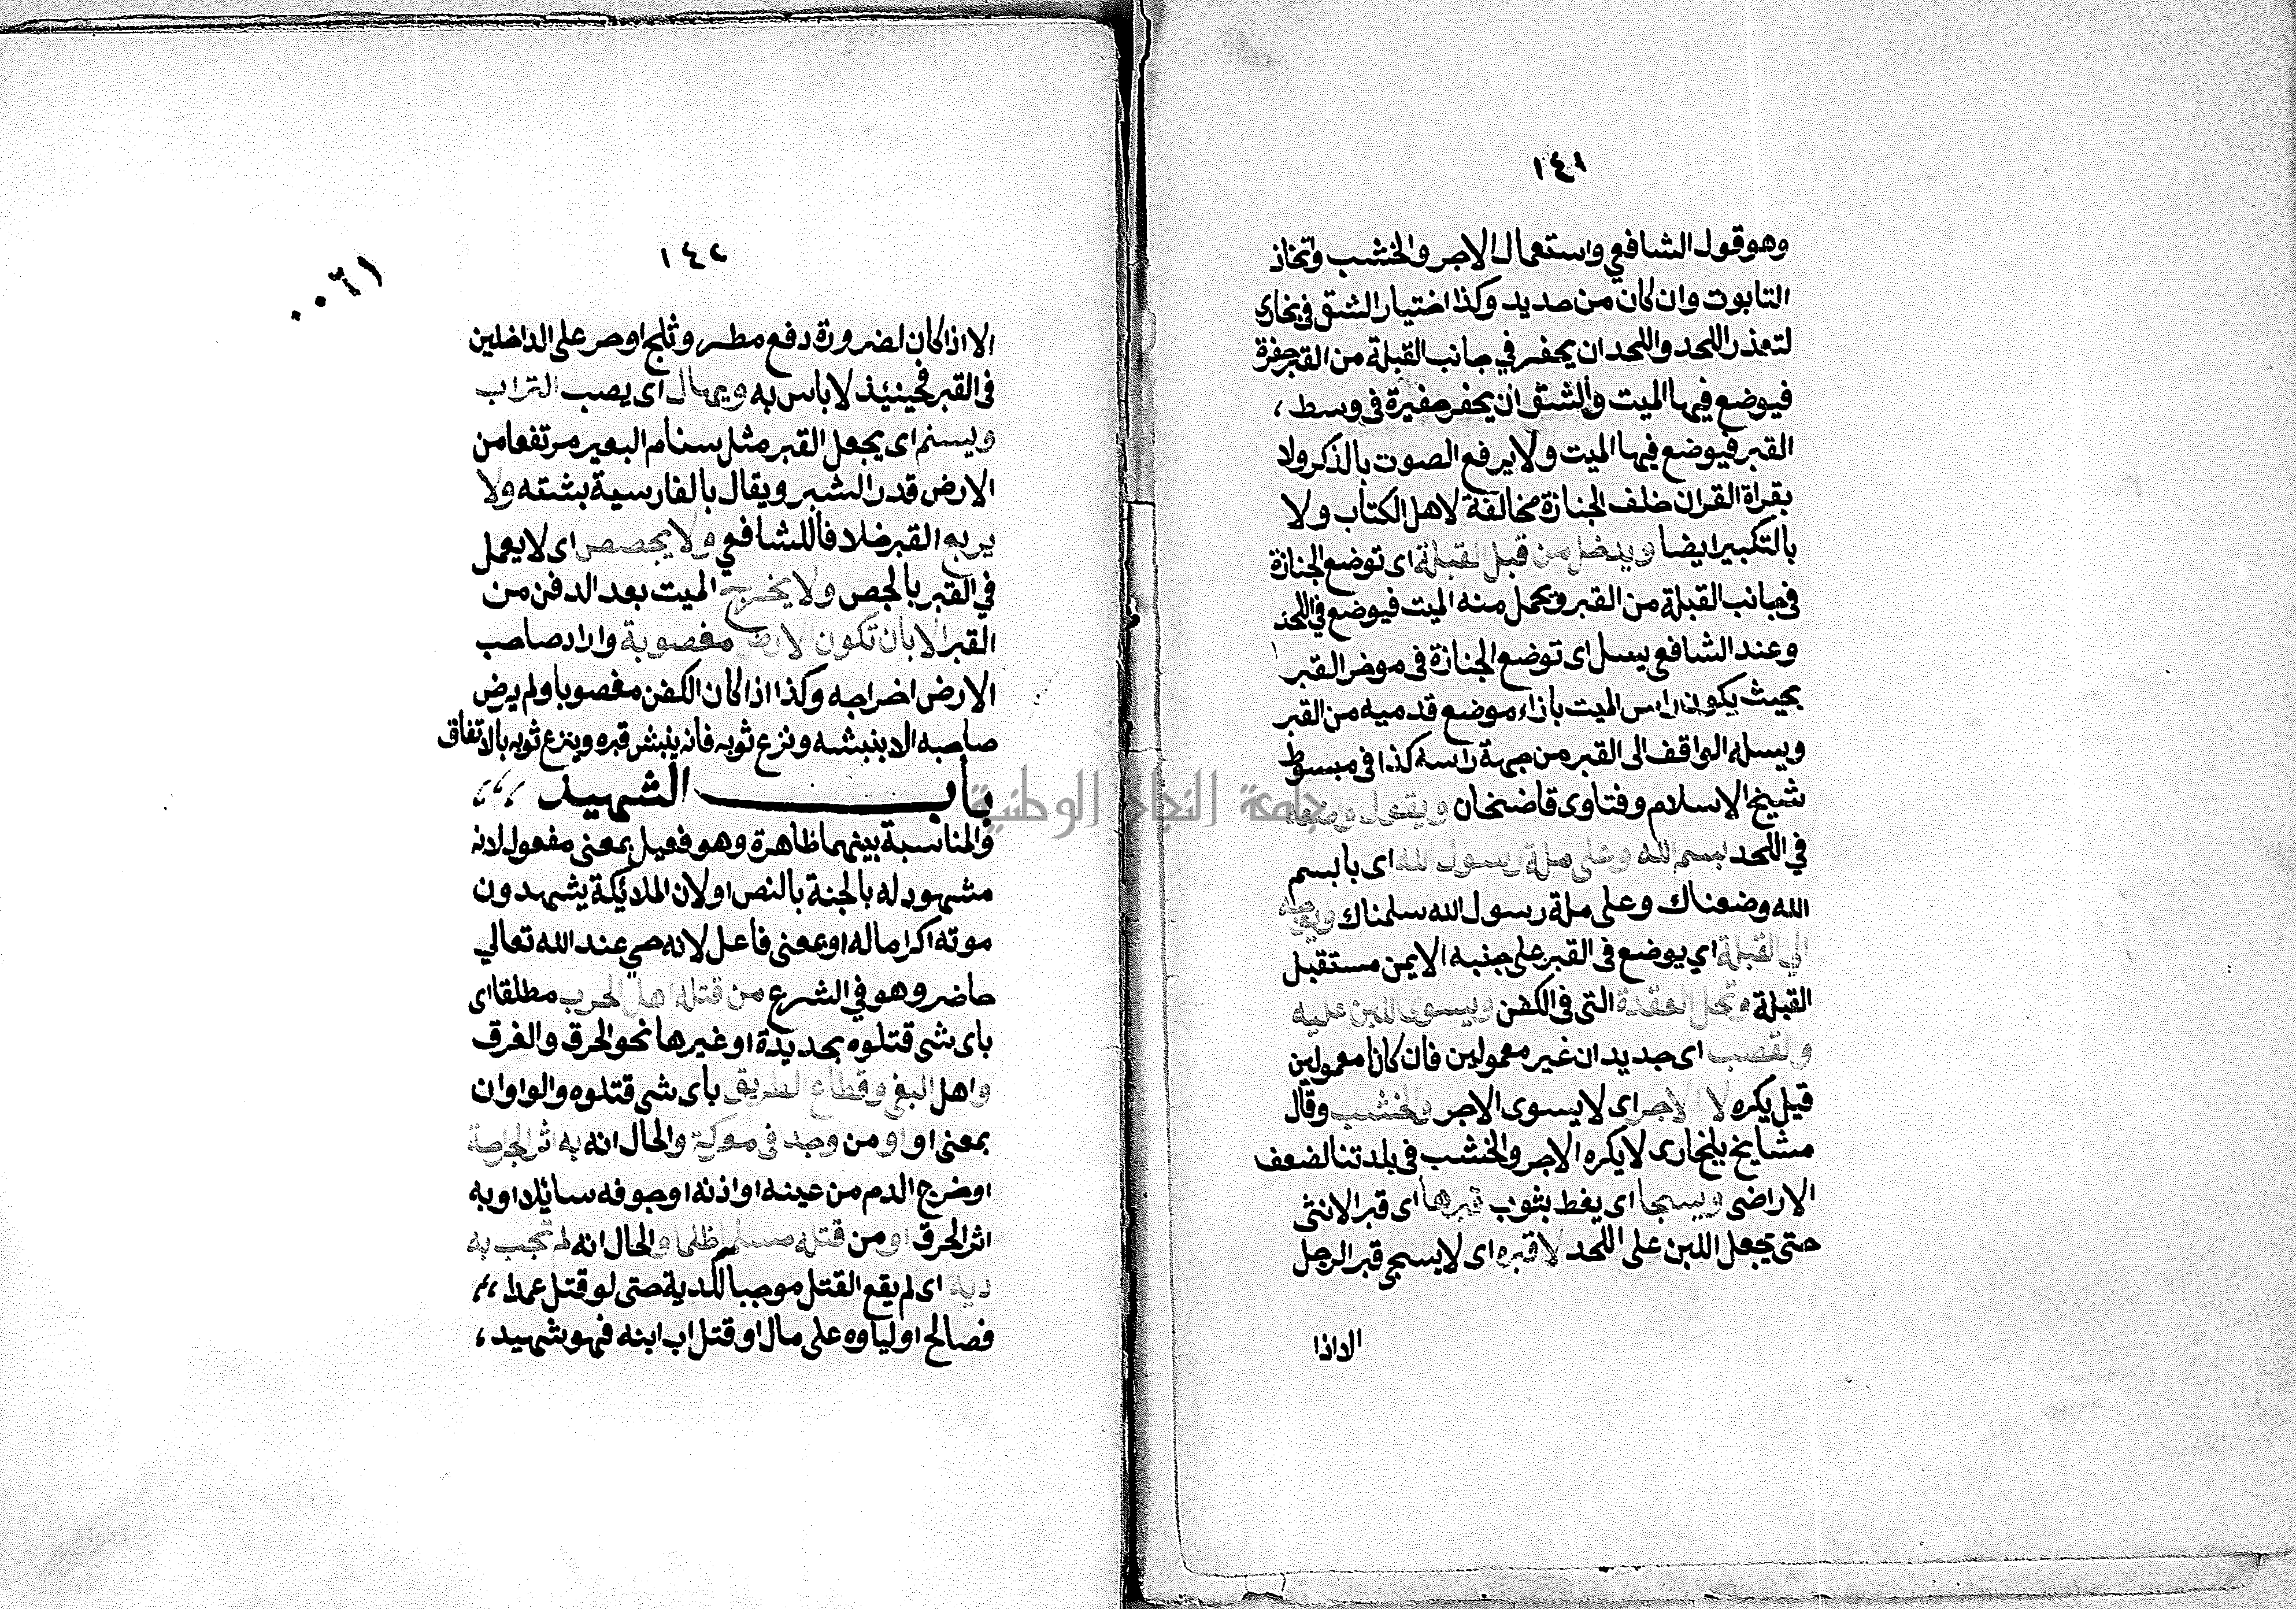 ١٤١
وهو قول الشافعي واستعمال الاجر والخشب واتخاذ
التابوت وان كان من حديد وكذا اختيار الشق في بخارى
لتعذر اللحد واللحد ان يحفر في جانب القبلة من القبر حفرة
فيوضع فيها الميت والشق ان يحفر حفيرة في وسط ،
القبر فيوضع فيها الميت ولا يرفع الصوت بالذكر ولا
بقراة القران خلف الجنازة مخالفة لاهل الكتاب ولا
بالتكبير ايضا ويدخل من قبل القبلة اى توضع الجنازة
في جانب القبلة من القبر ويحمل منه الميت فيوضع في اللحد
وعند الشافعي يسل اى توضع الجنازة في موخر القبر
بحيث يكون راس الميت بازاء موضع قدميه من القبر
ويسله الواقف الى القبر من جهة راسه كذا في مبسوط
شيخ الاسلام وفتاوى قاضخان ويقول وضعه
في اللحد بسم الله وعلى ملة رسول الله اى باسم
الله وضعناك وعلى ملة رسول الله سلمناك ويوجه
الي القبلة اي يوضع في القبر على جنبه الايمن مستقبل
القبلة وتحل العقدة التى في الكفن ويسوى اللبن عليه
والقصب اى جديدان غير معمولين فان كانا معمولين
قيل يكره لا الاجر اى لا يسوى الاجر والخشب وقال
مشايخ بلخارى لا يكره الاجر والخشب في بلدتنا لضعف
الاراضى ويسجا اى يغط بثوب قبرها اى قبر الانثى
حتى يجعل اللبن على اللحد لا قبره اى لا يسجى قبر الرجل
الا اذا
١٤٢
٠٠٦١
الا اذا كان لضرورة دفع مطر وثلج او حر على الداخلين
في القبر فحينئذ لا باس به ويهال اى يصب التراب
ويسنم اى يجعل القبر مثل سنام البعير مرتفعا من
الارض قدر الشبر ويقال بالفارسية بشته ولا
يربع القبر خلافا للشافعي ولا يجصص اى لا يعمل
في القبر بالجص ولا يخرج الميت بعد الدفن من
القبر الا بان تكون الارض مغصوبة واراد صاحب
الارض اخراجه وكذا اذا كان الكفن مغصوبا ولم يرض
صاحبه الا بنبشه ونزع ثوبه فانه ينبش قبره وينزع ثوبه بالاتفاق
باب الشهيد ،،،
والمناسبة بينهما ظاهرة وهو فعيل بمعنى مفعول لانه
مشهود له بالجنة بالنص او لان الملائكة يشهدون
موته اكراما له او بمعنى فاعل لانه حي عند الله تعالي
حاضر وهو في الشرع من قتله اهل الحرب مطلقا اى
باى شى قتلوه بحديدة او غيرها نحو الحرق والغرق
واهل البغي وقطاع الطريق باى شى قتلوه والواوان
بمعنى او او من وجد في معركة والحال انه به اثر الجراحة
او خرج الدم من عينه او اذنه او جوفه سائلا او به
اثر الحرق او من قتله مسلم ظلما والحال انه لم تجب به
دية اى لم يقع القتل موجبا للدية حتى لو قتل عمدا ،،
فصالح اولياوه على مال او قتل اب ابنه فهو شهيد ،
جامعة النجاح الوطنية